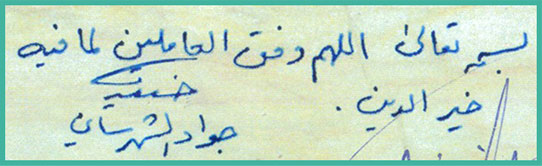 بسمه تعالى اللهم وفق العاملين لما فيه
خير الدين.
جواد الشهرستاني